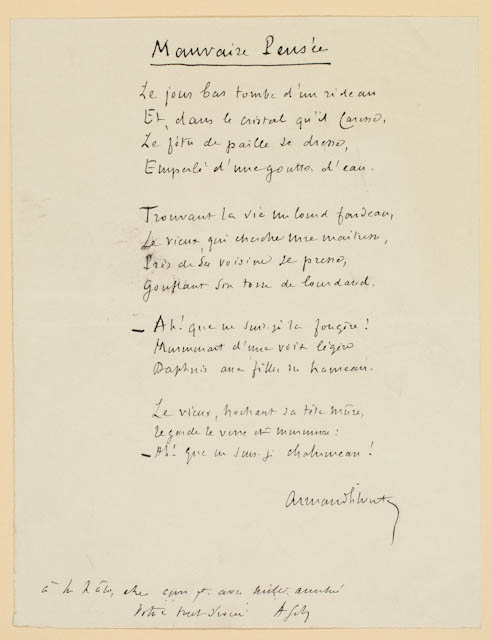 Mauvaise Pensée
Le jour bas tombe d'un rideau
Et, dans le cristal qu'il caresse,
Le fétu de paille se dresse,
Emperlé d'une goutte d'eau.
Trouvant la vie un lourd fardeau,
Le vieux, qui cherche une maitresse,
Près de sa voisine se presse,
Gonflant son torse de lourdaud.
— Ah! que ne suis-je la fougère!
Murmurait d'une voix légère
Daphnis aux filles du hameau.
Le vieux, hochant sa tête mûre,
regarde le verre et murmure:
— Ah! que ne suis-je chalumeau!
Armand Silvestre
à
avec mille amitiés
Votre tout dévoué